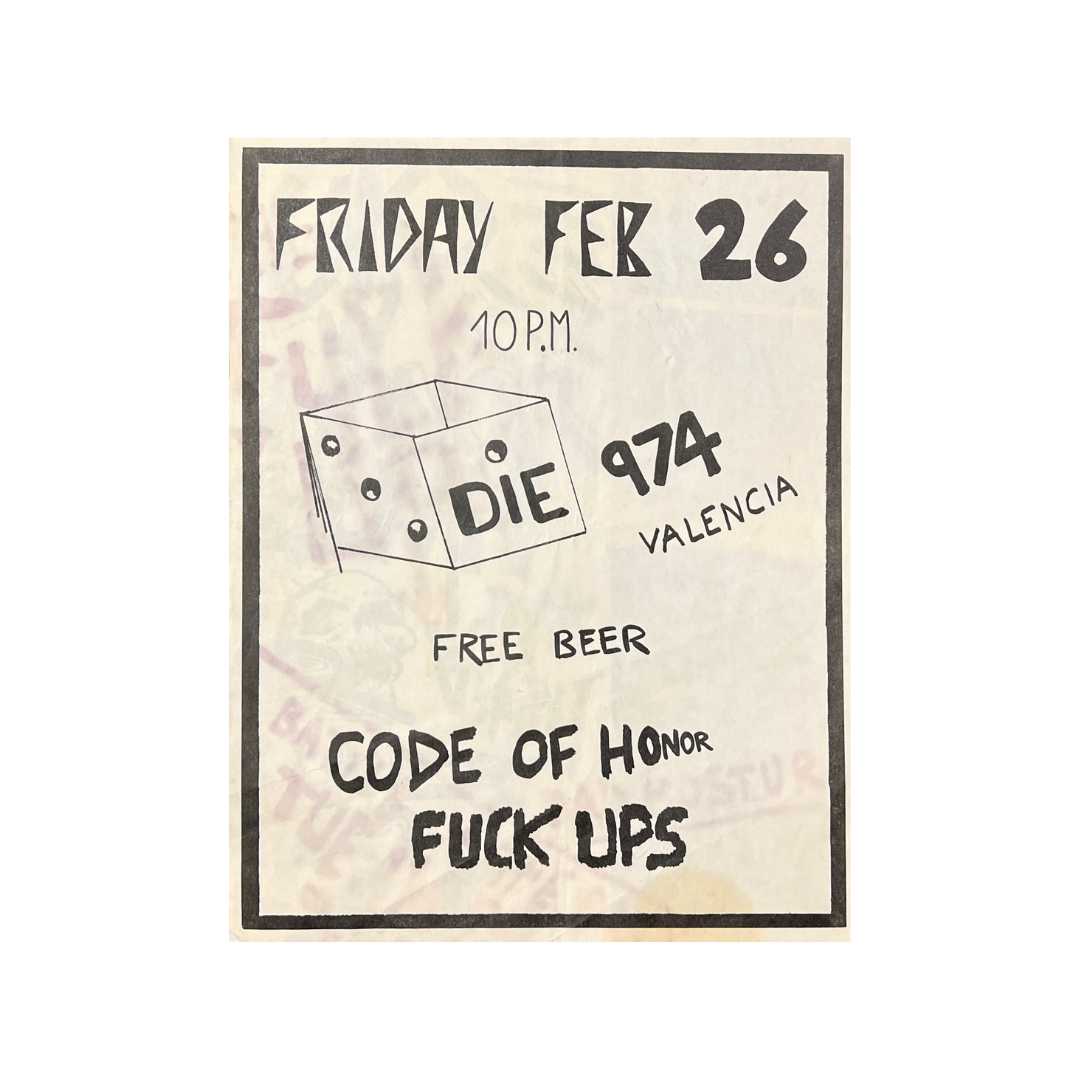 FRIDAY FEB 26
10 P.M.
DIE 974
VALENCIA
FREE BEER
CODE OF HONOR
FUCK UPS